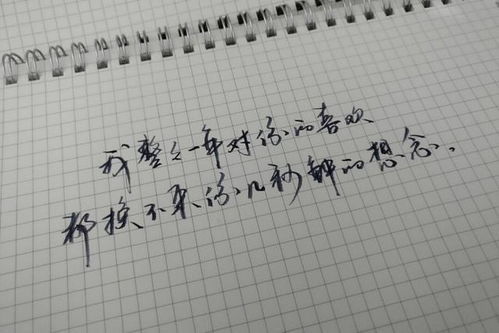 我整整一年对你的喜欢
都换不来你几秒钟的想念.